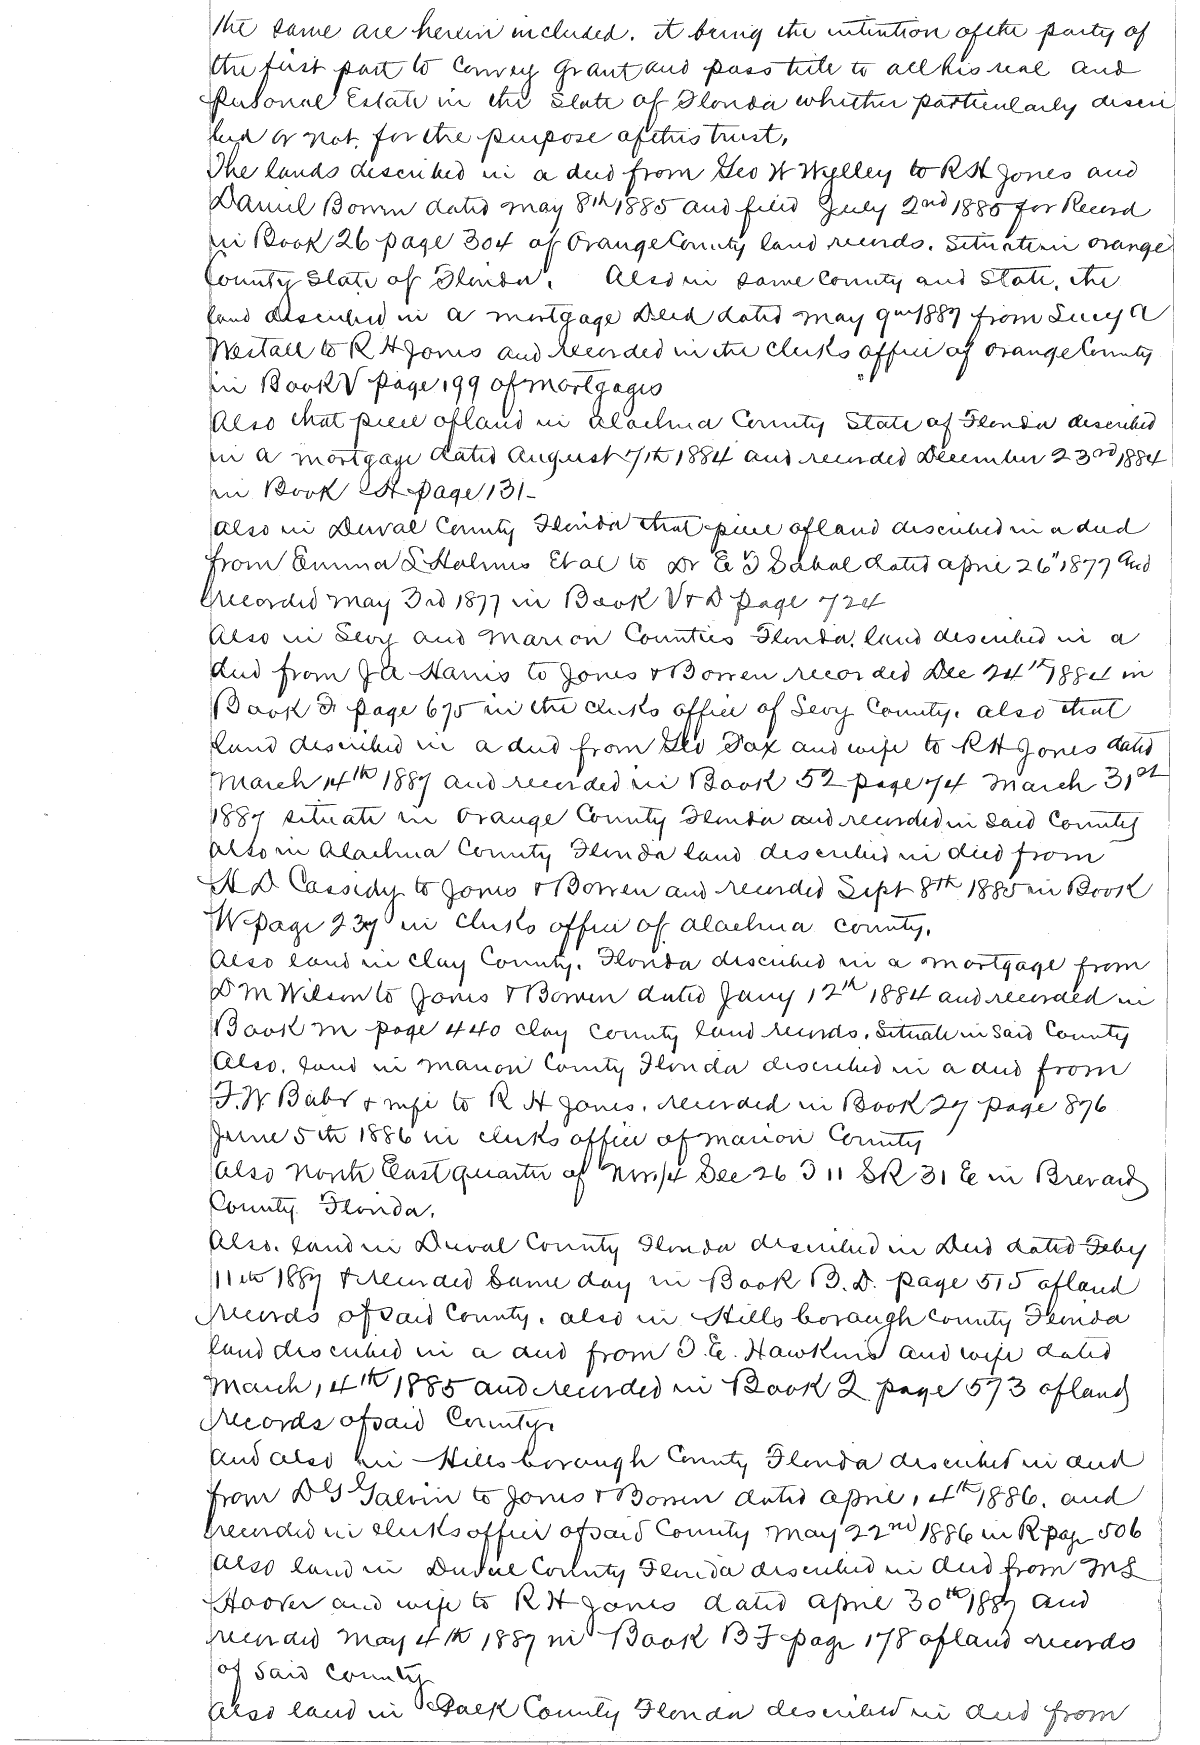 the same are herein included. it being the intention of the party of
the first part to Convey Grant and pass title to all his real and
Personal Estate in the State of Florida whether particularly descri
bed or not. for the purpose of this trust.
The lands described in a deed from Geo W Wylley to R H Jones and
Daniel Bowen dated May 8th 1885 and filed July 2nd 1885 for Record
in Book 26 page 304 of Orange County land records. Situate in Orange
County State of Florida. Also in same County and State, the
land described in a mortgage Deed dated May 9th 1887 from Lucy A
Westall to R H Jones and recorded in the Clerks office of Orange County
in Book V page 199 of mortgages
Also that piece of land in Alachua County State of Florida described
in a mortgage dated August 7th 1884 and recorded December 23rd 1884
in Book H page 131-
Also in Duval County Florida that piece of land described in a deed
from Emma L Holmes Et al to Dr E T Sabal dated April 26" 1877 and
recorded May 3rd 1877 in Book page 724
Also in Levy and Marion Counties Florida. land described in a
deed from J A Harris to Jones & Bowen recorded Dec 24th 1884 in
Book page 675 in the clerks office of Levy County. also that
land described in a deed from Geo Fax and wife to R H Jones dated
March 14th 1887 and recorded in Book 52 page 74 March 31st
1887 situate in Orange County Florida and recorded in said County
also in Alachua County Florida land described in deed from
H D Cassidy to Jones & Bowen and recorded Sept 8th 1885 in Book
W page 237 in clerks office of Alachua county.
Also land in Clay County. Florida described in a mortgage from
D M Wilson to Jones & Bowen dated Jany 12th 1884 and recorded in
Book M page 440 Clay County land records. Situate in said County
Also. land in Marion County Florida described in a deed from
F. W Babr & wife to R H Jones. recorded in Book 27 page 876
June 5th 1886 in clerks office of Marion County
Also North East quarter of NW 1/4 Sec 26 T 11 S R 31 E in Brevard
County Florida.
Also. land in Duval County Florida described in Deed dated Feby
11th 1887 & recorded Same day in Book B. D. page 515 of land
records of said County. also in Hillsborough County Florida
land described in a deed from T. E. Hawkins and wife dated
March 14th 1885 and recorded in Book 2 page 573 of land
records of said County.
and also in Hillsborough County Florida described in deed
from D G Galvin to Jones & Bowen dated April 14th 1886. and
recorded in clerks office of said County May 22nd 1886 in R page 506
Also land in Duval County Florida described in deed from M S
Hoover and wife to R H Jones dated April 30th 1887 and
recorded May 4th 1887 in Book B F page 178 of land records
of said County
Also land in Polk County Florida described in deed from